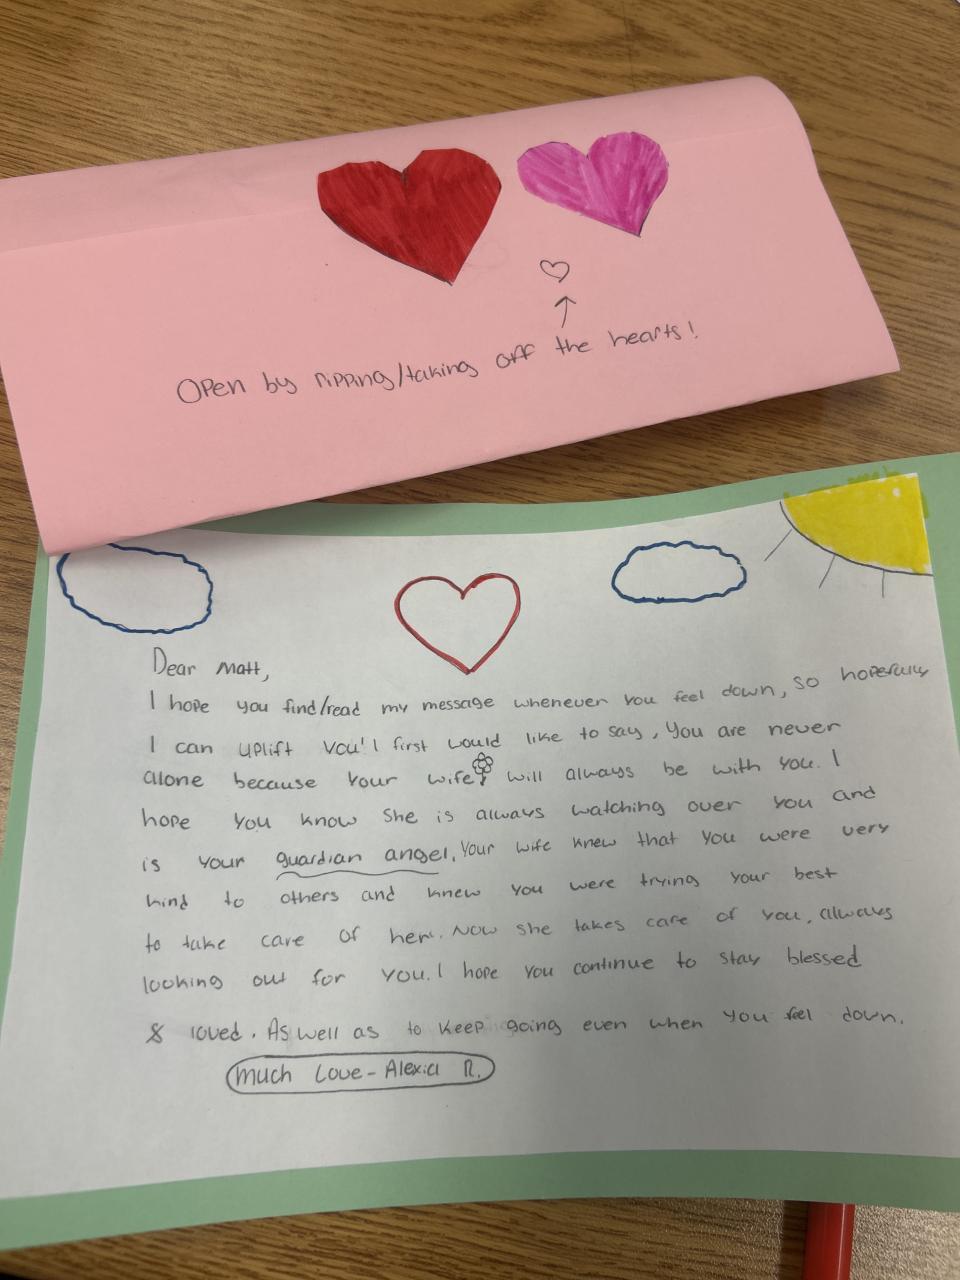 Open by ripping/taking off the hearts!
Dear Matt,
I hope you find/read my message whenever you feel down, so hopefully
I can uplift you! I first would like to say, You are never
alone because your wife will always be with you. I
hope you know she is always watching over you and
is your guardian angel. Your wife knew that you were very
kind to others and knew you were trying your best
to take care of her. Now she takes care of you, always
looking out for you. I hope you continue to stay blessed
& loved. As well as to keep going even when you feel down.
Much Love - Alexia R.